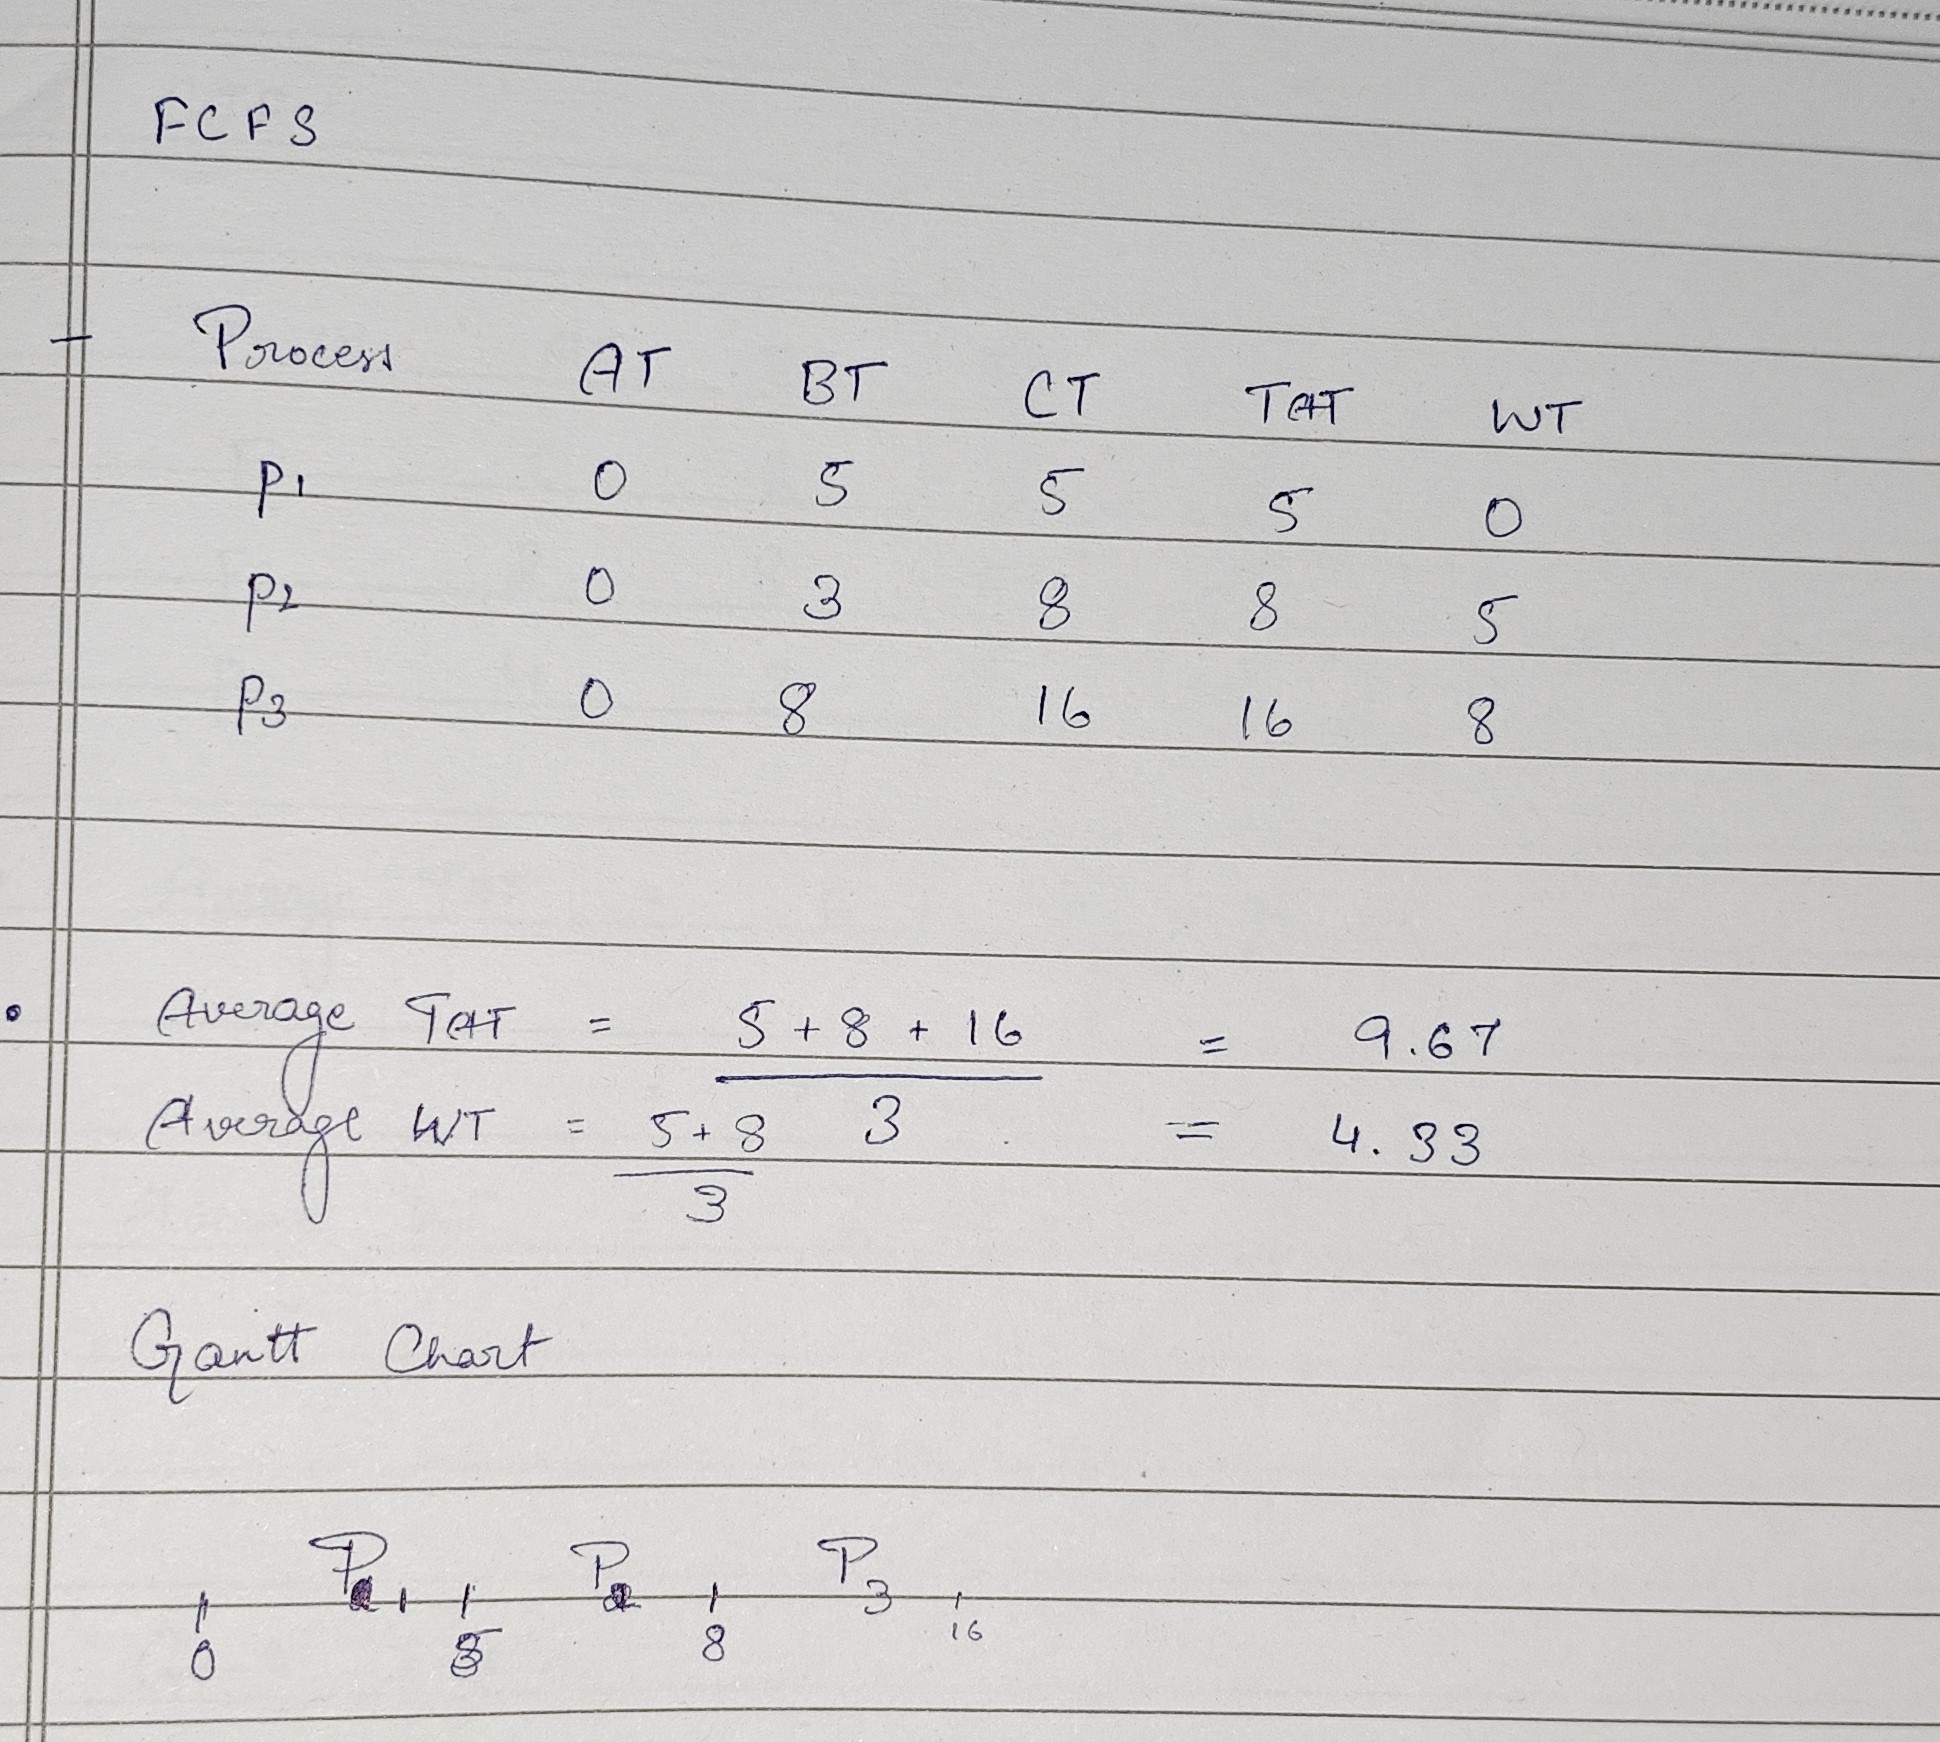 FCFS
Process AT BT CT TAT WT
P1 0 5 5 5 0
P2 0 3 8 8 5
P3 0 8 16 16 8
Average TAT = 5 + 8 + 16 = 9.67
3
Average WT = 5+8 = 4.33
3
Gantt Chart
P1 P2 P3
0 5 8 16